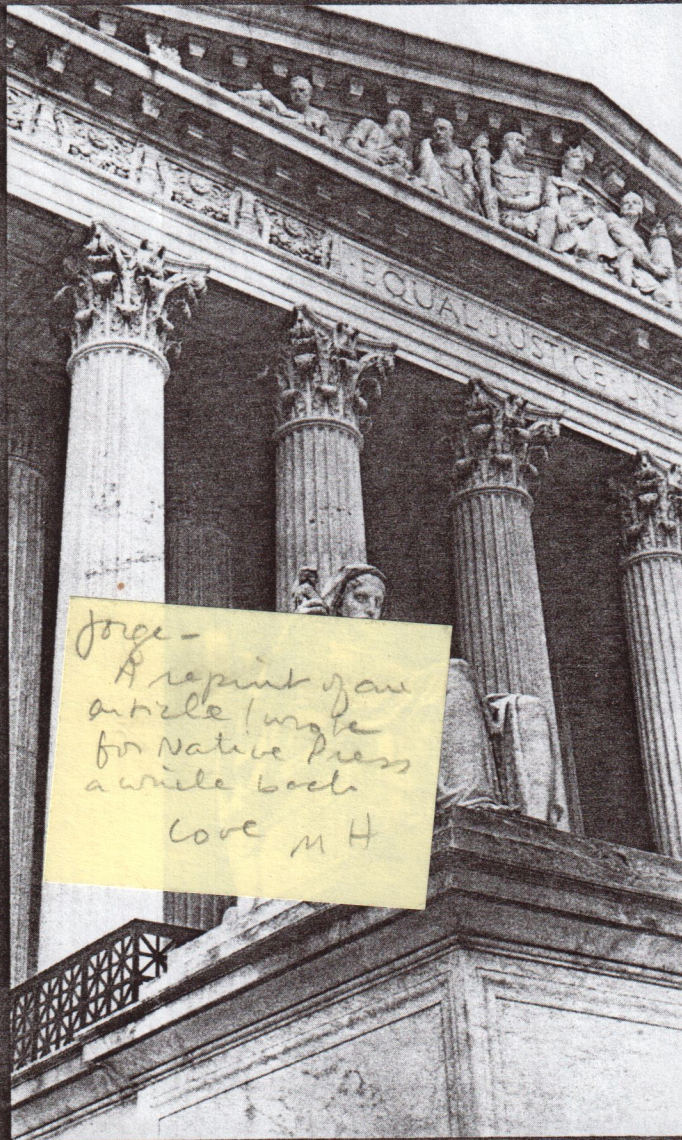 EQUAL·JUSTICE·UND
Jorge-
A reprint of an
article I wrote
for Native Press
a while back
Love M H